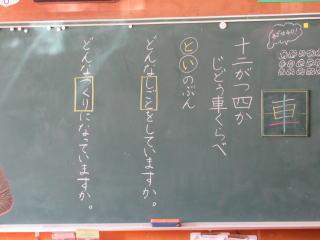 十二がつ四か
じどう車くらべ
といのぶん
どんなしごとをしていますか。
どんなつくりになっていますか。
車